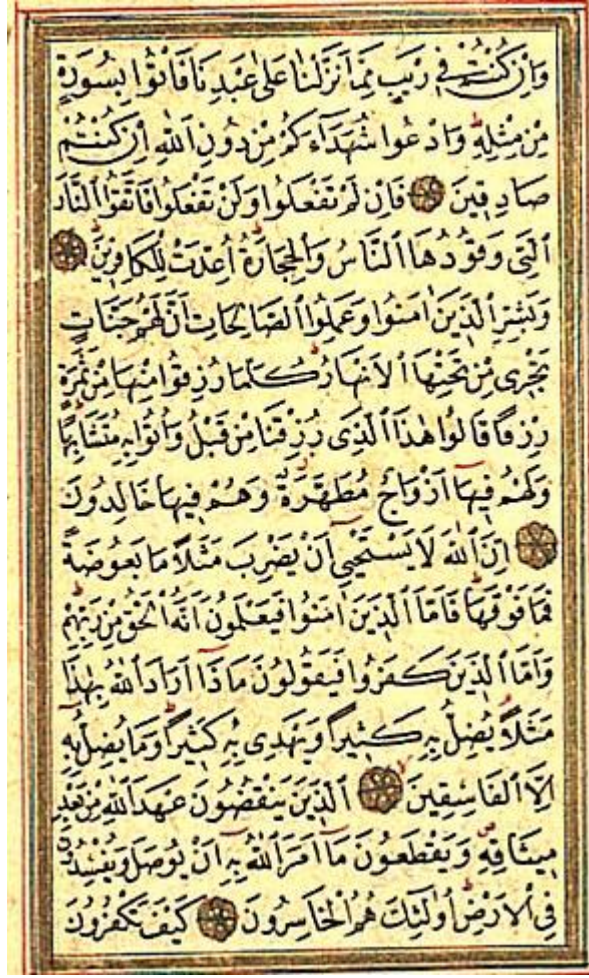 وَاِنْ كُنْتُمْ فِى رَيْبٍ مِمَّا نَزَّلْنَا عَلٰى عَبْدِنَا فَأْتُوا بِسُورَةٍ
مِنْ مِثْلِهِ وَادْعُوا شُهَدَاءَكُمْ مِنْ دُونِ اللّٰهِ اِنْ كُنْتُمْ
صَادِقِينَ فَاِنْ لَمْ تَفْعَلُوا وَلَنْ تَفْعَلُوا فَاتَّقُوا النَّارَ
الَّتِى وَقُودُهَا النَّاسُ وَالْحِجَارَةُ اُعِدَّتْ لِلْكَافِرِينَ
وَبَشِّرِ الَّذِينَ اٰمَنُوا وَعَمِلُوا الصَّالِحَاتِ اَنَّ لَهُمْ جَنَّاتٍ
تَجْرِى مِنْ تَحْتِهَا الْاَنْهَارُ كُلَّمَا رُزِقُوا مِنْهَا مِنْ ثَمَرَةٍ
رِزْقًا قَالُوا هٰذَا الَّذِى رُزِقْنَا مِنْ قَبْلُ وَاُتُوا بِهِ مُتَشَابِهًا
وَلَهُمْ فِيهَا اَزْوَاجٌ مُطَهَّرَةٌ وَهُمْ فِيهَا خَالِدُونَ
اِنَّ اللّٰهَ لَا يَسْتَحْيِى اَنْ يَضْرِبَ مَثَلًا مَا بَعُوضَةً
فَمَا فَوْقَهَا فَاَمَّا الَّذِينَ اٰمَنُوا فَيَعْلَمُونَ اَنَّهُ الْحَقُّ مِنْ رَبِّهِمْ
وَاَمَّا الَّذِينَ كَفَرُوا فَيَقُولُونَ مَاذَا اَرَادَ اللّٰهُ بِهٰذَا
مَثَلًا يُضِلُّ بِهِ كَثِيرًا وَيَهْدِى بِهِ كَثِيرًا وَمَا يُضِلُّ بِهِ
اِلَّا الْفَاسِقِينَ الَّذِينَ يَنْقُضُونَ عَهْدَ اللّٰهِ مِنْ بَعْدِ
مِيثَاقِهِ وَيَقْطَعُونَ مَا اَمَرَ اللّٰهُ بِهِ اَنْ يُوصَلَ وَيُفْسِدُونَ
فِى الْاَرْضِ اُولٰئِكَ هُمُ الْخَاسِرُونَ كَيْفَ تَكْفُرُونَ